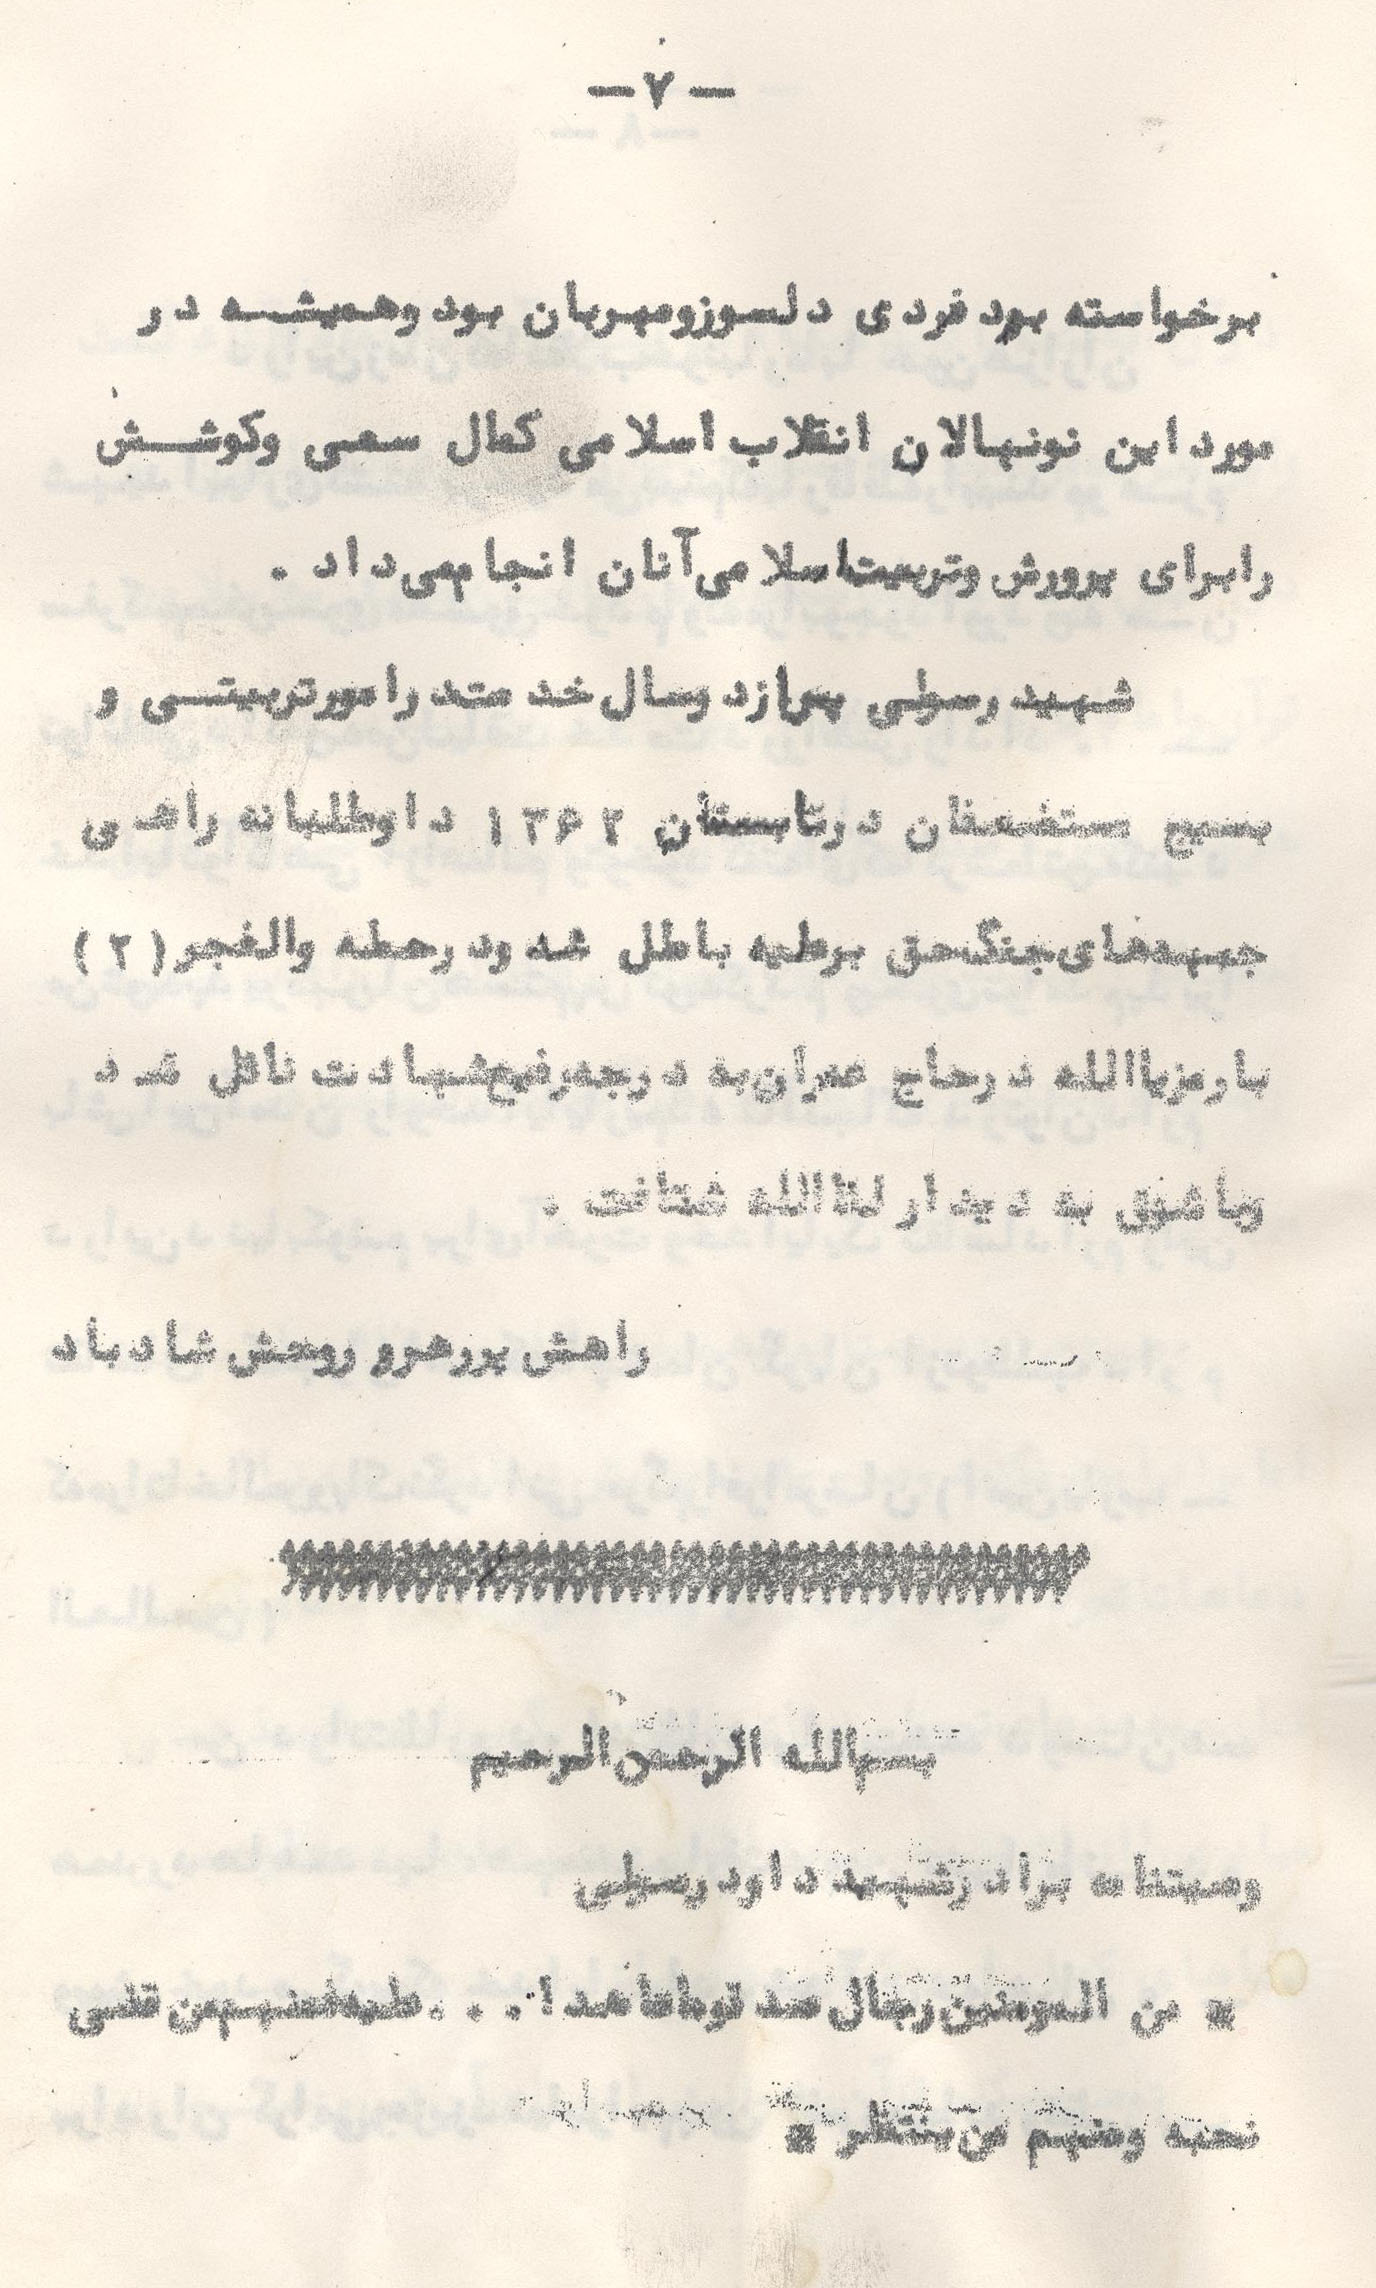 -۷-
برخواسته بود فردی دلسوز و مهربان بود و همیشه در
مورد این نونهالان انقلاب اسلامی کمال سعی وکوشش
را برای پرورش و تربیت اسلامی آنان انجام می‌داد .
شهید رسولی پس از دوسال خدمت در امور تربیتی و
بسیج مستضعفان در تابستان ۱۳۶۲ داوطلبانه راهی
جبهه‌های جنگ حق برعلیه باطل شد ودر حمله والفجر (۲)
با رمز یا الله در حاج عمران به درجه رفیع شهادت نائل شد
وعاشق به دیدار لقا الله شتافت .
راهش پررهرو روحش شاد باد
بسم‌الله الرحمن الرحیم
وصیتنامه برادر شهید داود رسولی
" من المومنین رجال صدقوا ماعاهدا . . . علیه فمنهم من قضی
نحبه ومنهم من ینتظر "